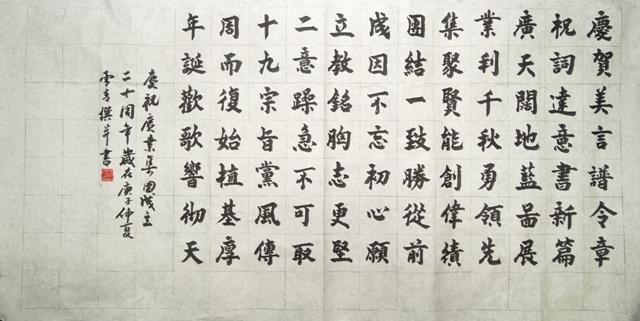 慶賀美言譜令章
祝詞達意書新篇
廣天闊地藍啚展
業利千秋勇領先
集聚賢能創偉績
團結一致勝從前
成因不忘初心願
立教銘胸志更堅
二意躁急不可取
十九宗旨黨風傳
周而復始植基厚
年誕歡歌響彻天
庆祝廣業集团成立
二十周年歲在庚子仲夏
撰并書